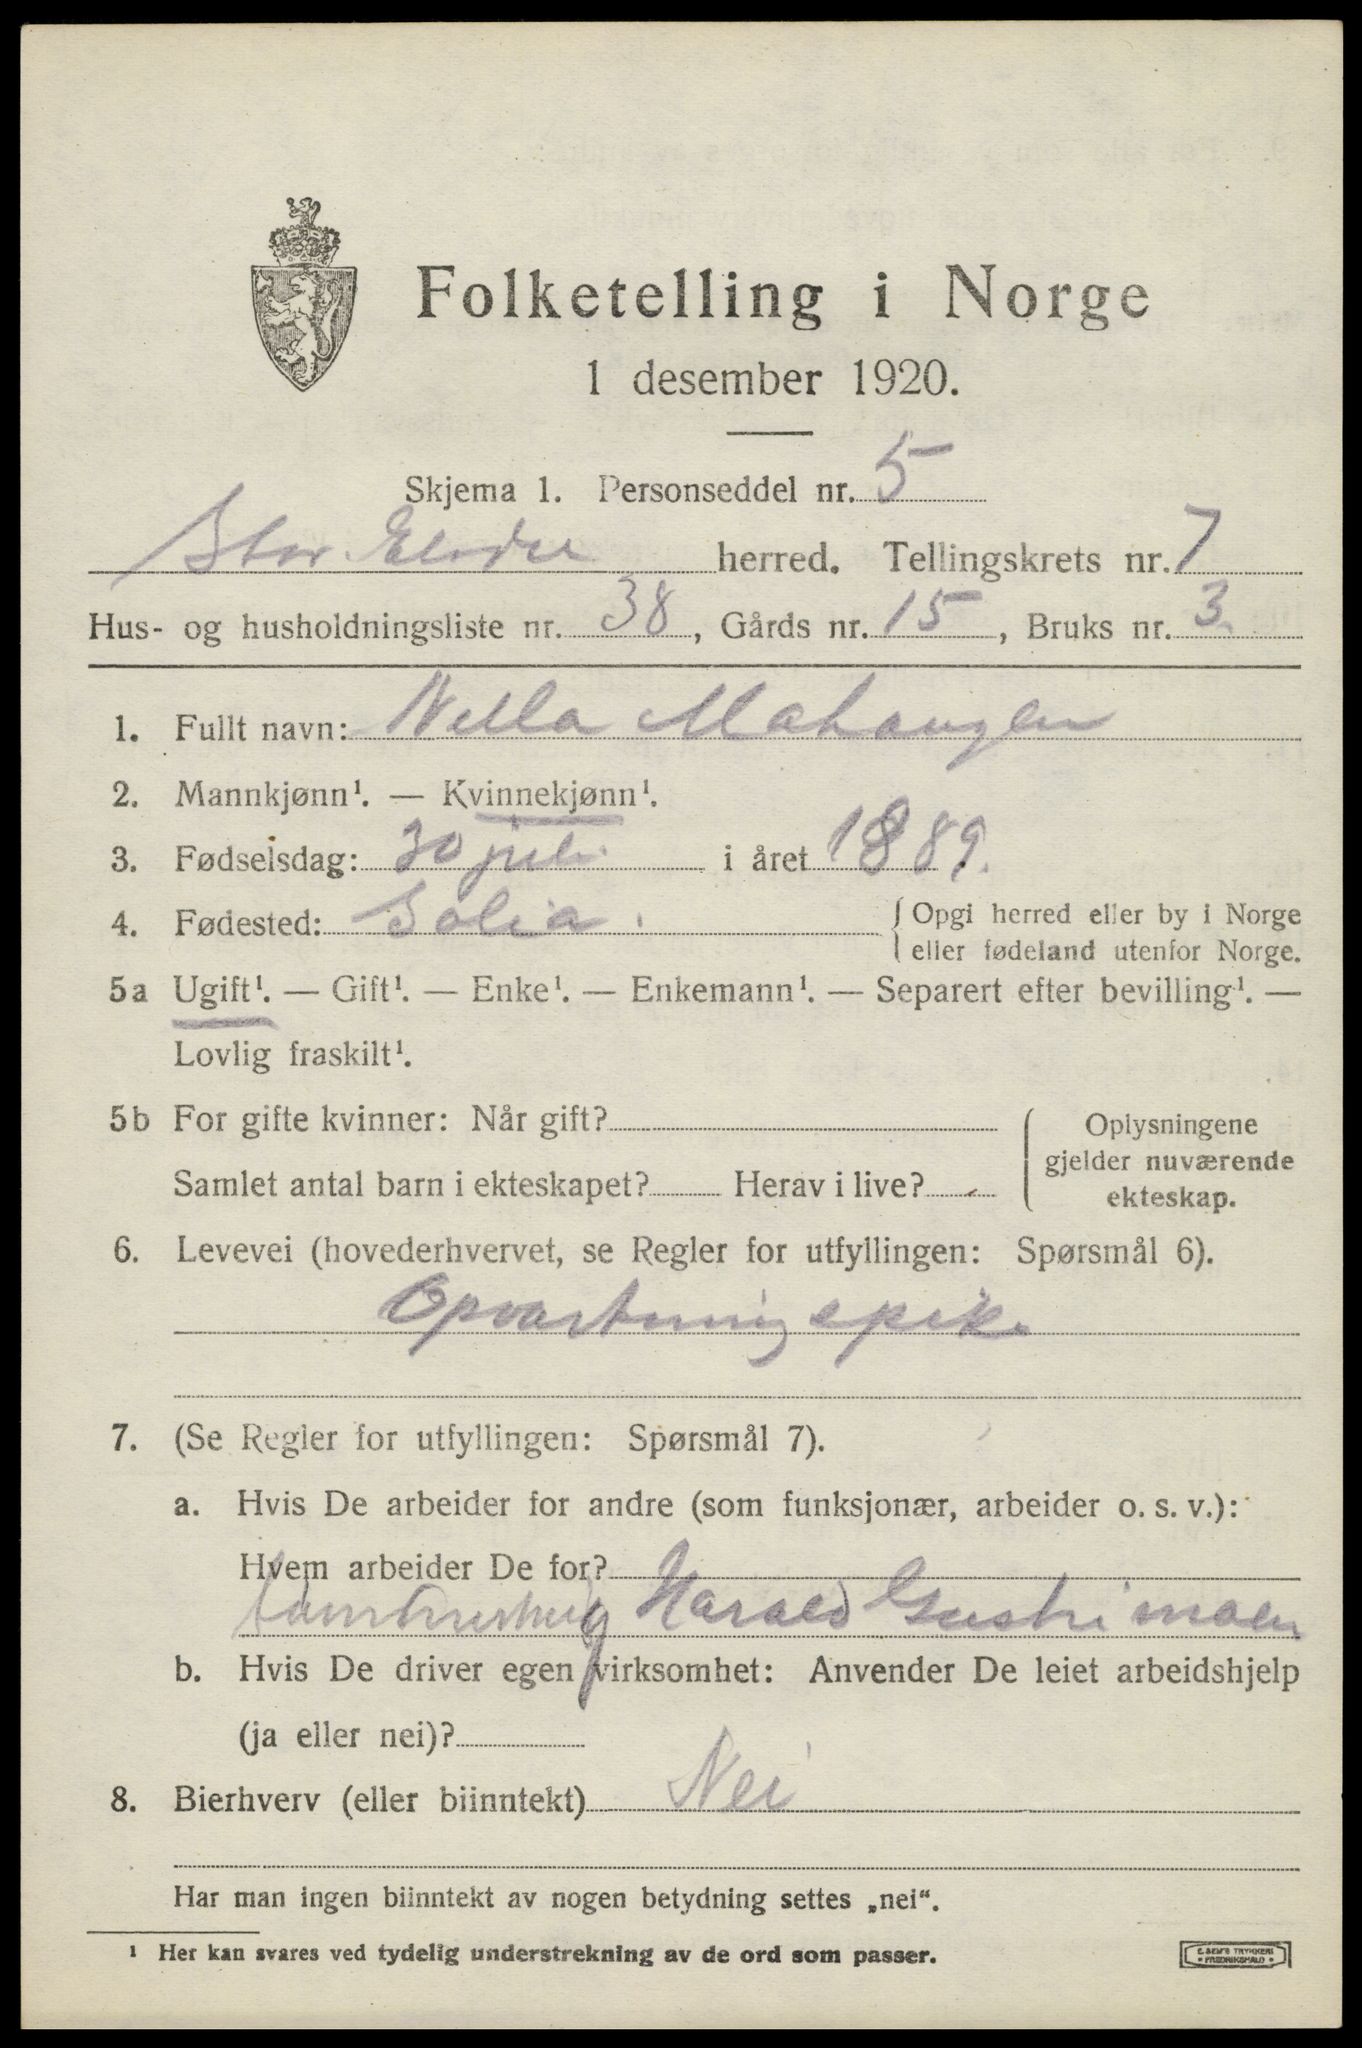 Folketelling i Norge
1 desember 1920.
Skjema 1. Personseddel nr. 5
Stor Elvdal herred. Tellingskrets nr. 7
Hus- og husholdningsliste nr. 38, Gårds nr. 15, Bruks nr. 3.
1. Fullt navn: Nella Mahaugen
2. Mannkjønn¹. — Kvinnekjønn¹.
3. Fødselsdag: 30 juli i året 1889.
4. Fødested: Solia. { Opgi herred eller by i Norge
eller fødeland utenfor Norge.
5a Ugift¹. — Gift¹. — Enke¹. — Enkemann¹. — Separert efter bevilling¹. —
Lovlig fraskilt¹.
5b For gifte kvinner: Når gift?
Samlet antal barn i ekteskapet? Herav i live?
{ Oplysningene
gjelder nuværende
ekteskap.
6. Levevei (hovederhvervet, se Regler for utfyllingen: Spørsmål 6).
Opvartningspike
7. (Se Regler for utfyllingen: Spørsmål 7).
a. Hvis De arbeider for andre (som funksjonær, arbeider o. s. v.):
Hvem arbeider De for?
Harald
b. Hvis De driver egen virksomhet: Anvender De leiet arbeidshjelp
(ja eller nei)?
8. Bierhverv (eller biinntekt) Nei
Har man ingen biinntekt av nogen betydning settes „nei“.
¹ Her kan svares ved tydelig understrekning av de ord som passer.
E. SEM'S TRYKKERI
• FREDRIKSHALD •